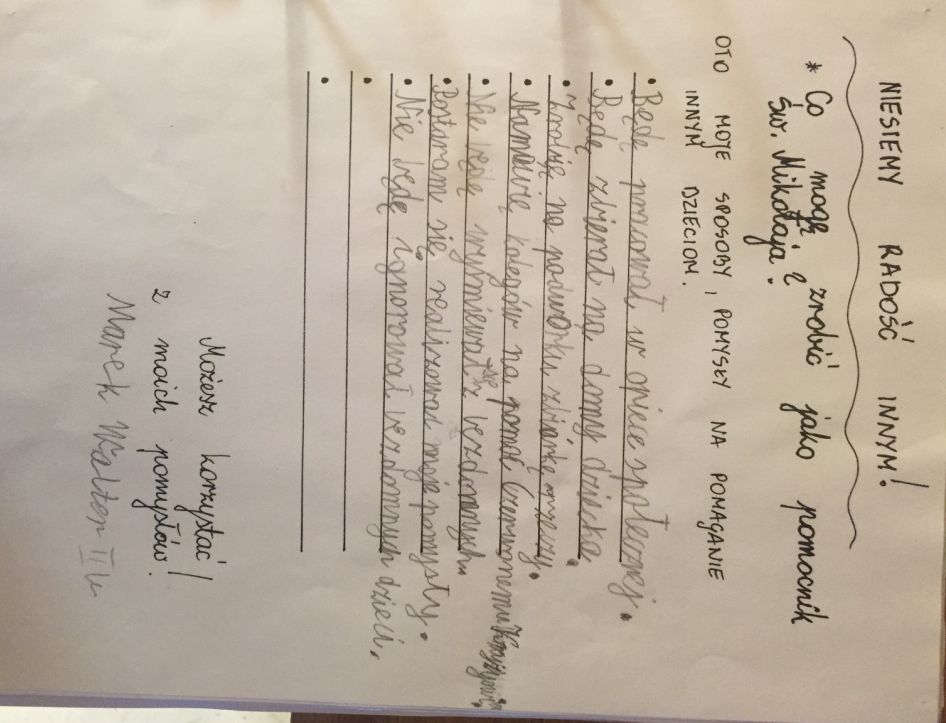 NIESIEMY RADOŚĆ INNYM!
* Co mogę zrobić jako pomocnik
św. Mikołaja?
OTO MOJE SPOSOBY, POMYSŁY NA POMAGANIE
INNYM DZIECIOM.
• Będę pracował w opiece społecznej.
• Będę zbierał na domy dziecka.
• Zrobię na podwórku zbiórkę rzeczy.
• Namówię kolegów na pomoc Czerwonemu Krzyżowi.
• Nie będę wyśmiewał się z bezdomnych.
• Postaram się realizować moje pomysły.
• Nie będę ignorował bezdomnych dzieci.
•
•
Możesz korzystać
z moich pomysłów!
Marek Walter II b